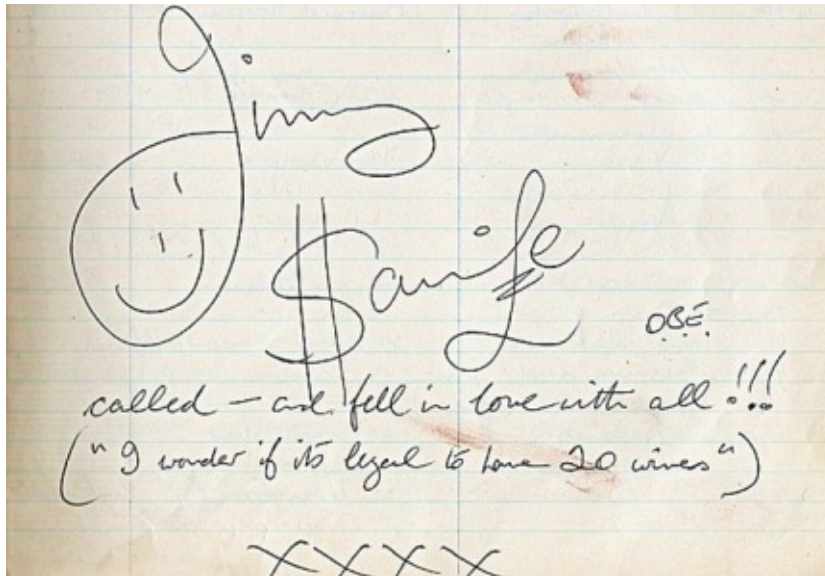 Jimmy
Savile
OBE
called – and fell in love with all !!!
("I wonder if its legal to have 20 wives")
XXXX